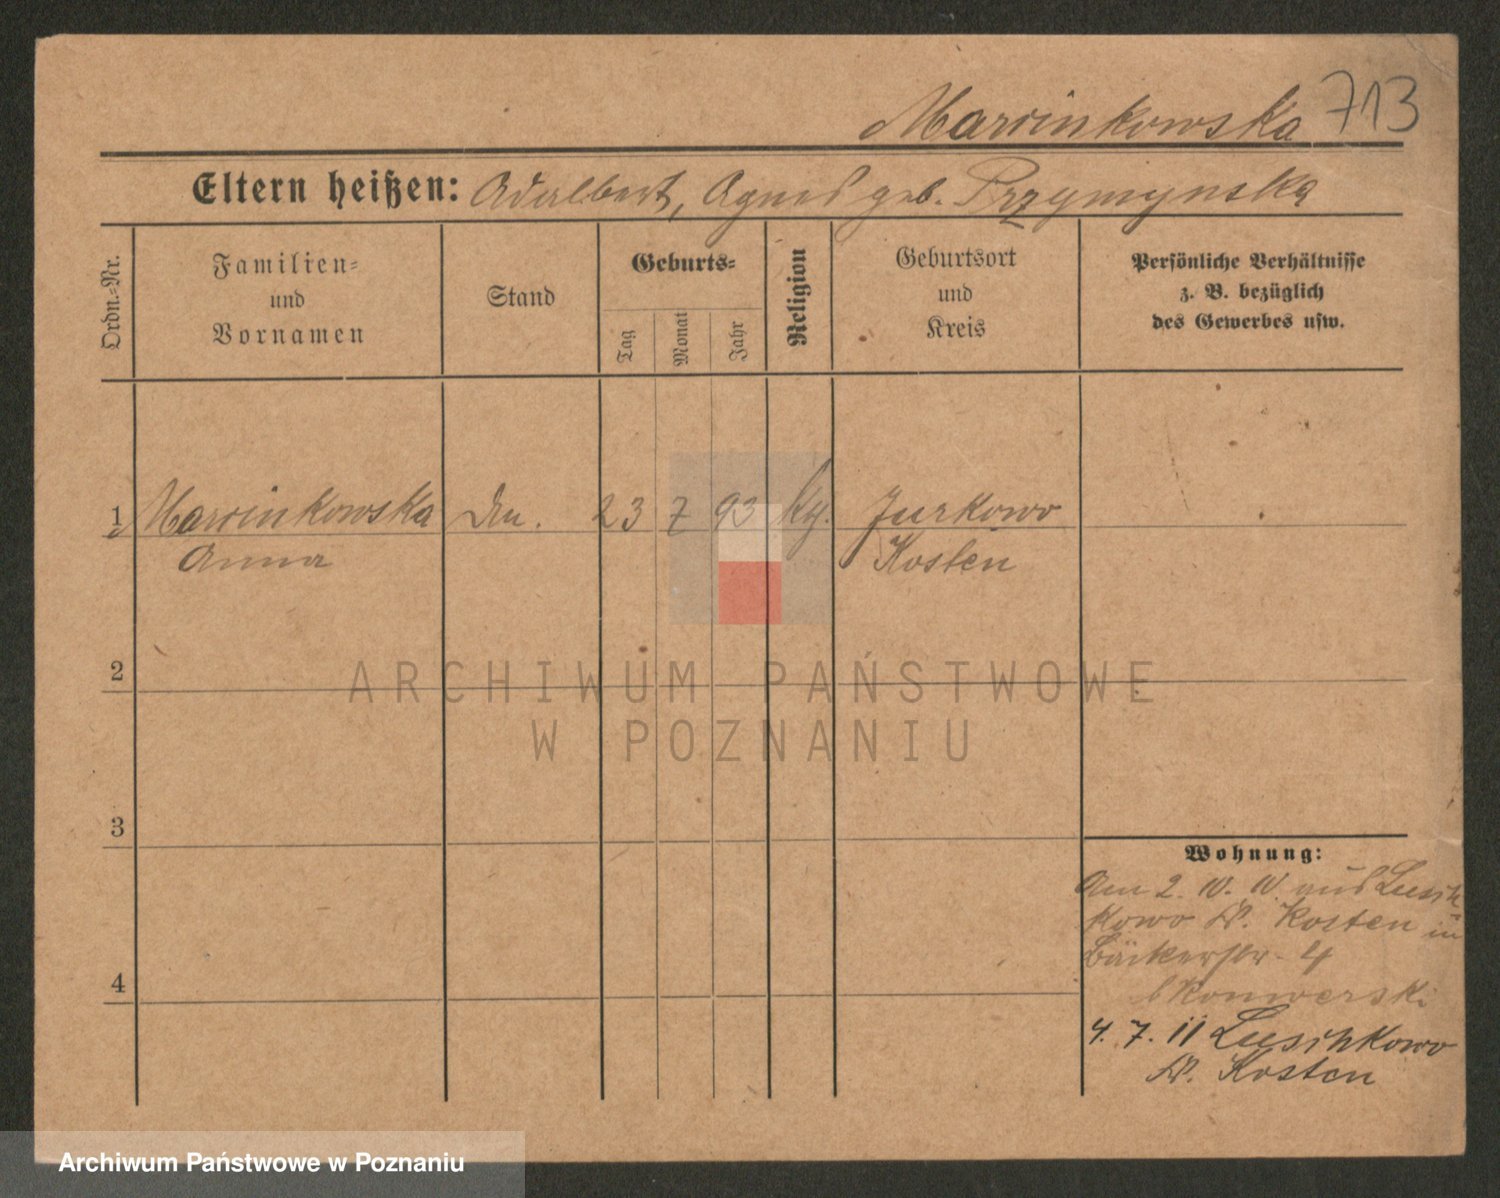 Marcinkowska 713
Eltern heißen: Adalbert, Agnes geb. Przymynska
Ordn.-Nr.
Familien-
und
Vornamen
Stand
Geburts-
Tag
Monat
Jahr
Religion
Geburtsort
und
Kreis
Persönliche Verhältnisse
z. B. bezüglich
des Gewerbes usw.
1 Marcinkowska 23 7 93 Jurkowo
Anna Kosten
2
ARCHIWUM PAŃSTWOWE
W POZNANIU
3
Wohnung:
Am 2. IV. aus Lusch
kowo Kr. Kosten in
Bäckerstr. 4
4
4. 7. 11 Luschkowo
Kr. Kosten
Archiwum Państwowe w Poznaniu